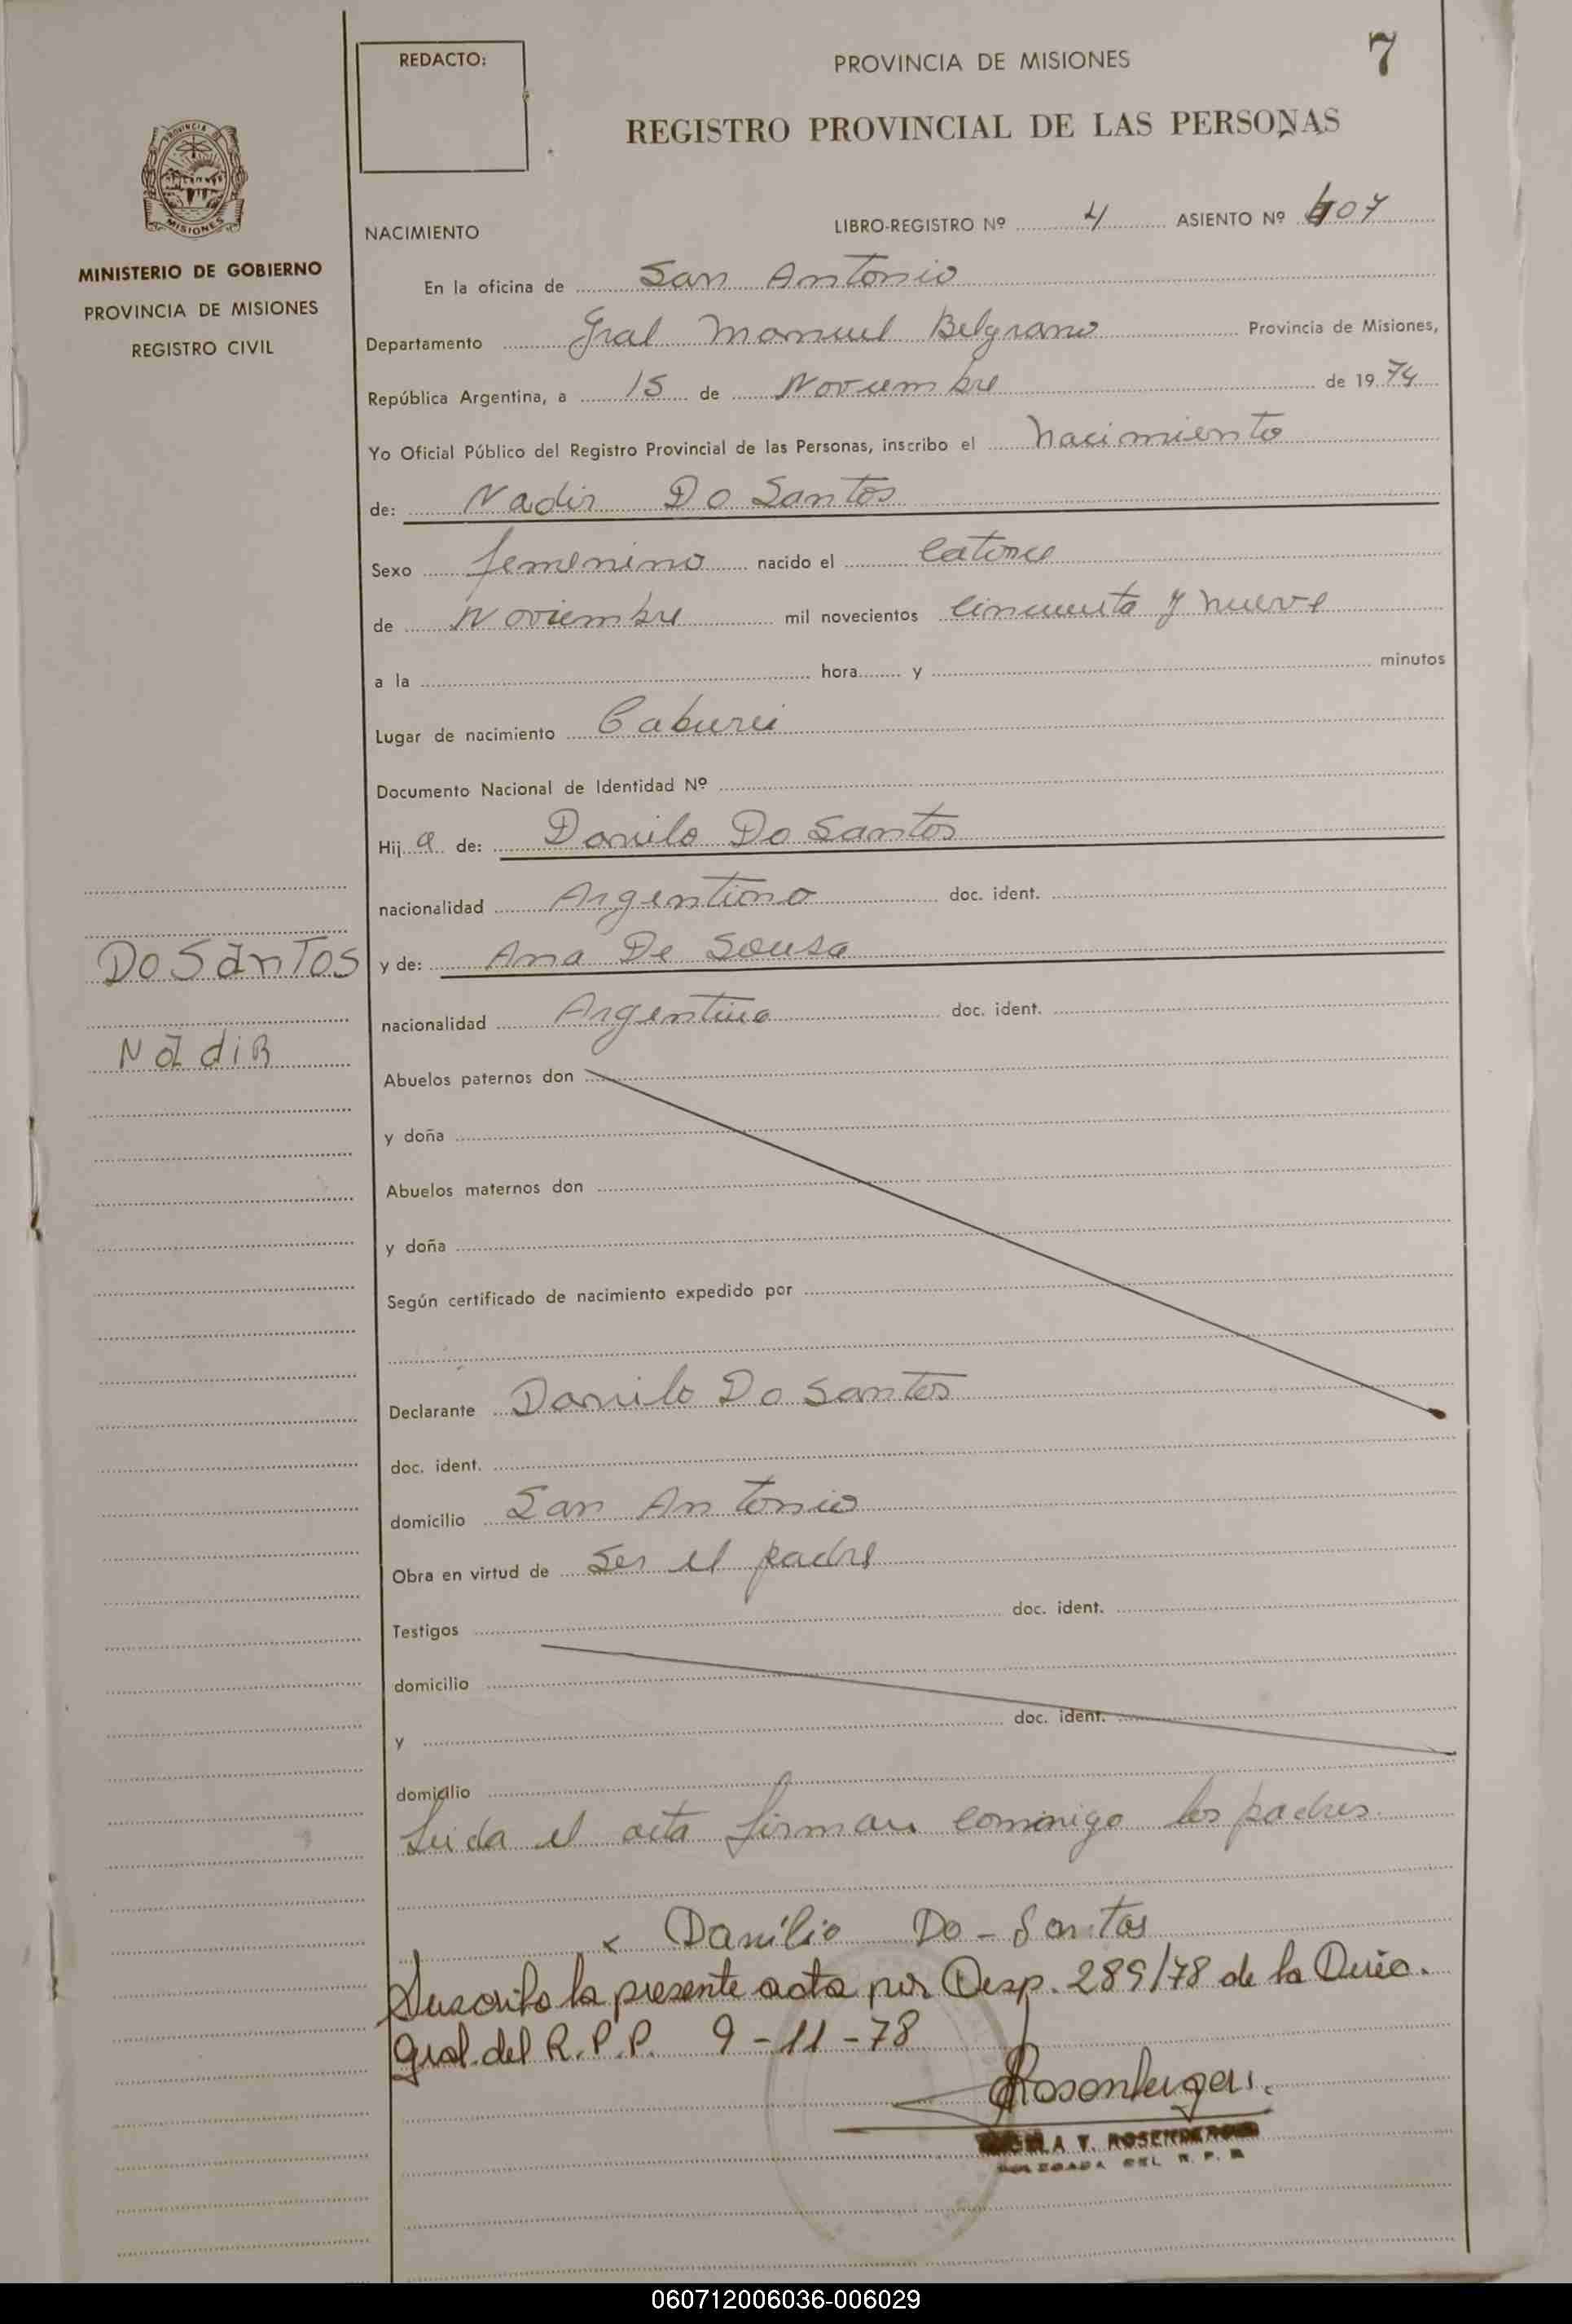 REDACTO:
PROVINCIA DE MISIONES
7
REGISTRO PROVINCIAL DE LAS PERSONAS
MISIONES
MINISTERIO DE GOBIERNO
PROVINCIA DE MISIONES
REGISTRO CIVIL
NACIMIENTO
LIBRO-REGISTRO Nº 4 ASIENTO Nº 607
En la oficina de San Antonio
Departamento Gral Manuel Belgrano Provincia de Misiones,
República Argentina, a 15 de Noviembre de 1974
Yo Oficial Público del Registro Provincial de las Personas, inscribo el nacimiento
de: Nadir Do Santos
Sexo femenino nacido el catorce
de Noviembre mil novecientos cincuenta y nueve
a la hora y minutos
Lugar de nacimiento Caburei
Documento Nacional de Identidad Nº
Hija de: Danilo Do Santos
nacionalidad Argentino doc. ident.
y de: Ana De Sousa
nacionalidad Argentina doc. ident.
Do Santos
Nadir
Abuelos paternos don
y doña
Abuelos maternos don
y doña
Según certificado de nacimiento expedido por
Declarante Danilo Do Santos
doc. ident.
domicilio San Antonio
Obra en virtud de ser el padre
Testigos doc. ident.
domicilio
y doc. ident.
domicilio
Leida el acta firman conmigo los padres
x Danílio Do-Santos
Suscrito la presente acta por Disp. 289/78 de la Direc.
Gral. del R.P.P. 9-11-78
Rosenberger
A T. ROSENBERGER
DELEGADA DEL R. P. P.
060712006036-006029